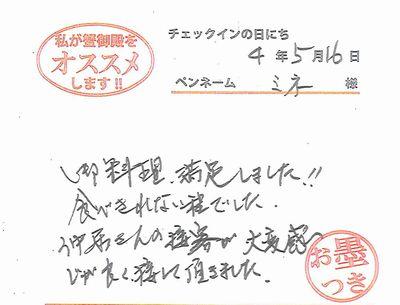 私が蟹御殿を
オススメ
します!!
チェックインの日にち
4年5月16日
ペンネーム ミネ 様
御料理、満足しました!!
食べきれない程でした。
仲居さんの接客が大変感
じが良く接して頂きました。
お墨
つき